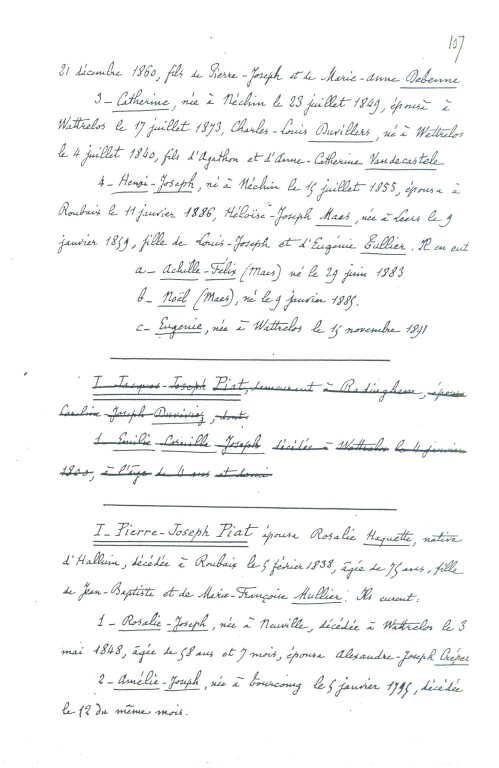 107
21 décembre 1860, fils de Pierre-Joseph et de Marie-Anne Debenne.
3 - Catherine, née à Néchin le 23 juillet 1849, épousa à
Wattrelos le 17 juillet 1873, Charles-Louis Duvillers, né à Wattrelos
le 4 juillet 1840, fils d'Agathon et d'Anne-Catherine Vandecastele
4 - Henri-Joseph, né à Néchin le 15 juillet 1855, épousa à
Roubaix le 11 janvier 1886, Héloïse-Joseph Maes, née à Leers le 9
janvier 1859, fille de Louis-Joseph et d'Eugénie Eullier. Il en eut
a - Achille-Félix (Maes) né le 29 juin 1883
b - Noël (Maes), né le 9 janvier 1885.
c - Eugenie, née à Wattrelos le 15 novembre 1891
I - Jacques-Joseph Piat, demeurant à Radinghem, épousa
Caroline Joseph Duvivier, dont
1 - Emilie Joseph décédée à Wattrelos le 4 janvier
1800, à l'âge de 4 ans et demi
I - Pierre-Joseph Piat épousa Rosalie Haquette, native
d'Halluin, décédée à Roubaix le 5 février 1838, âgée de 75 ans, fille
de Jean-Baptiste et de Marie-Françoise Mullier. Ils eurent :
1 - Rosalie-Joseph, née à Neuville, décédée à Wattrelos le 3
mai 1848, âgée de 58 ans et 7 mois, épousa Alexandre-Joseph Crépez
2 - Amélie-Joseph, née à Tourcoing le 5 janvier 1795, décédée
le 12 du même mois.